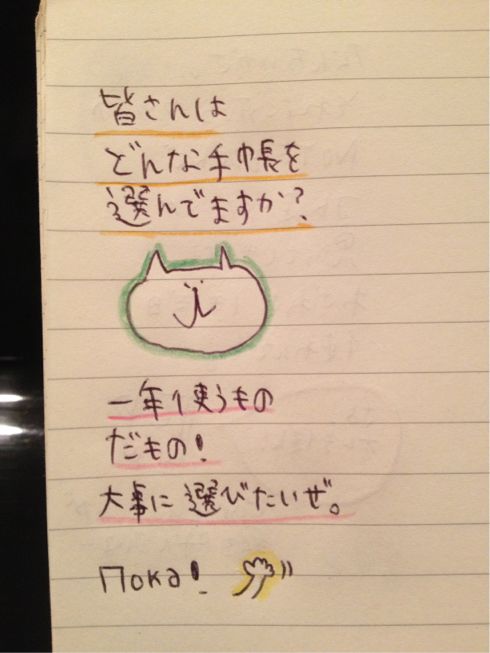 皆さんは
どんな手帳を
選んでますか?
一年使うもの
だもの!
大事に選びたいぜ。
Пока!